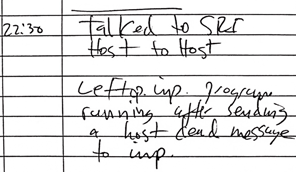 22:30 Talked to SRI
Host to Host
Left op. imp. program
running after sending
a host dead message
to imp.